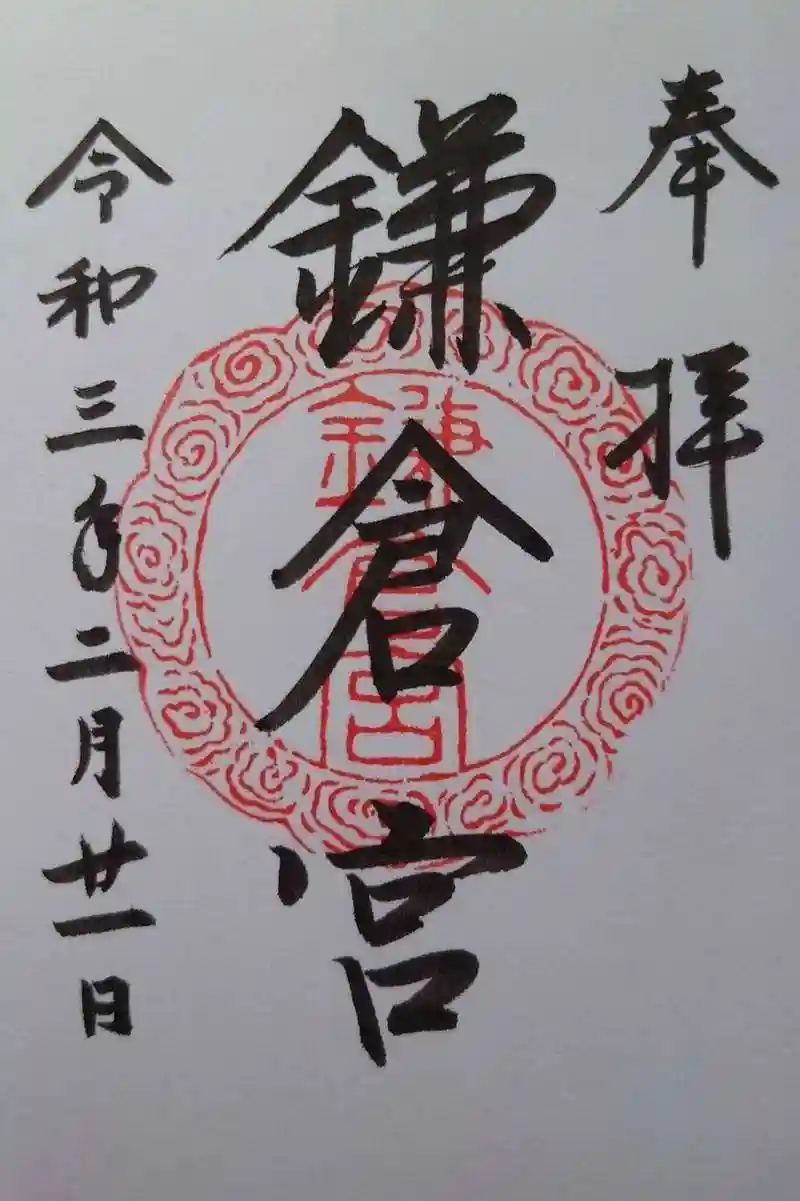 奉拝
鎌倉宮
鎌倉宮
令和三年二月廿一日